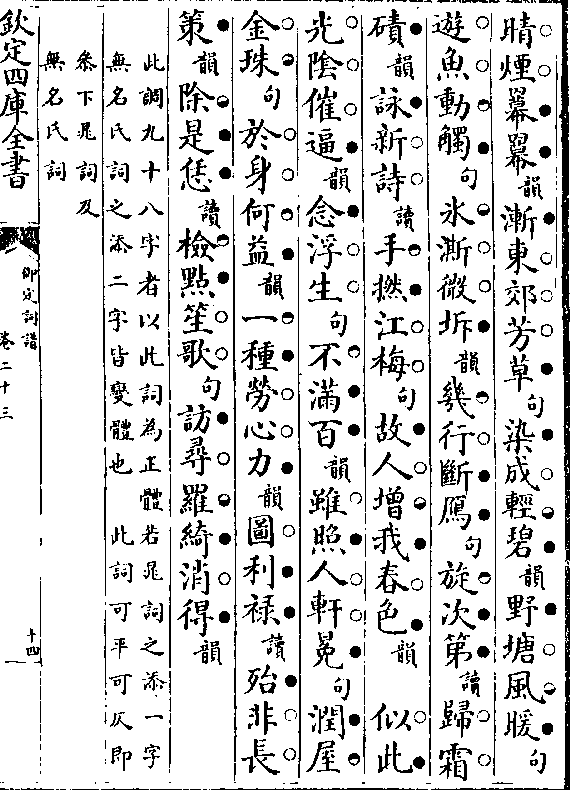 晴煙羃羃韻漸東郊芳草句染成輕碧韻野塘風暖句
遊魚動觸句氷澌微坼韻幾行斷鴈句旋次第讀歸霜
磧韻詠新詩讀手撚江梅句故人增我春色韻 似此
光陰催逼韻念浮生句不滿百韻雖照人軒冕句潤屋
金珠句於身何益韻一種勞心力韻圖利祿讀殆非長
策韻除是恁讀檢點笙歌句訪尋羅綺消得韻
此調九十八字者以此詞為正體若晁詞之添一字
無名氏詞之添二字皆變體也 此詞可平可仄即
叅下晁詞及
無名氏詞
欽定四庫全書
御定詞譜
卷二十三
十四